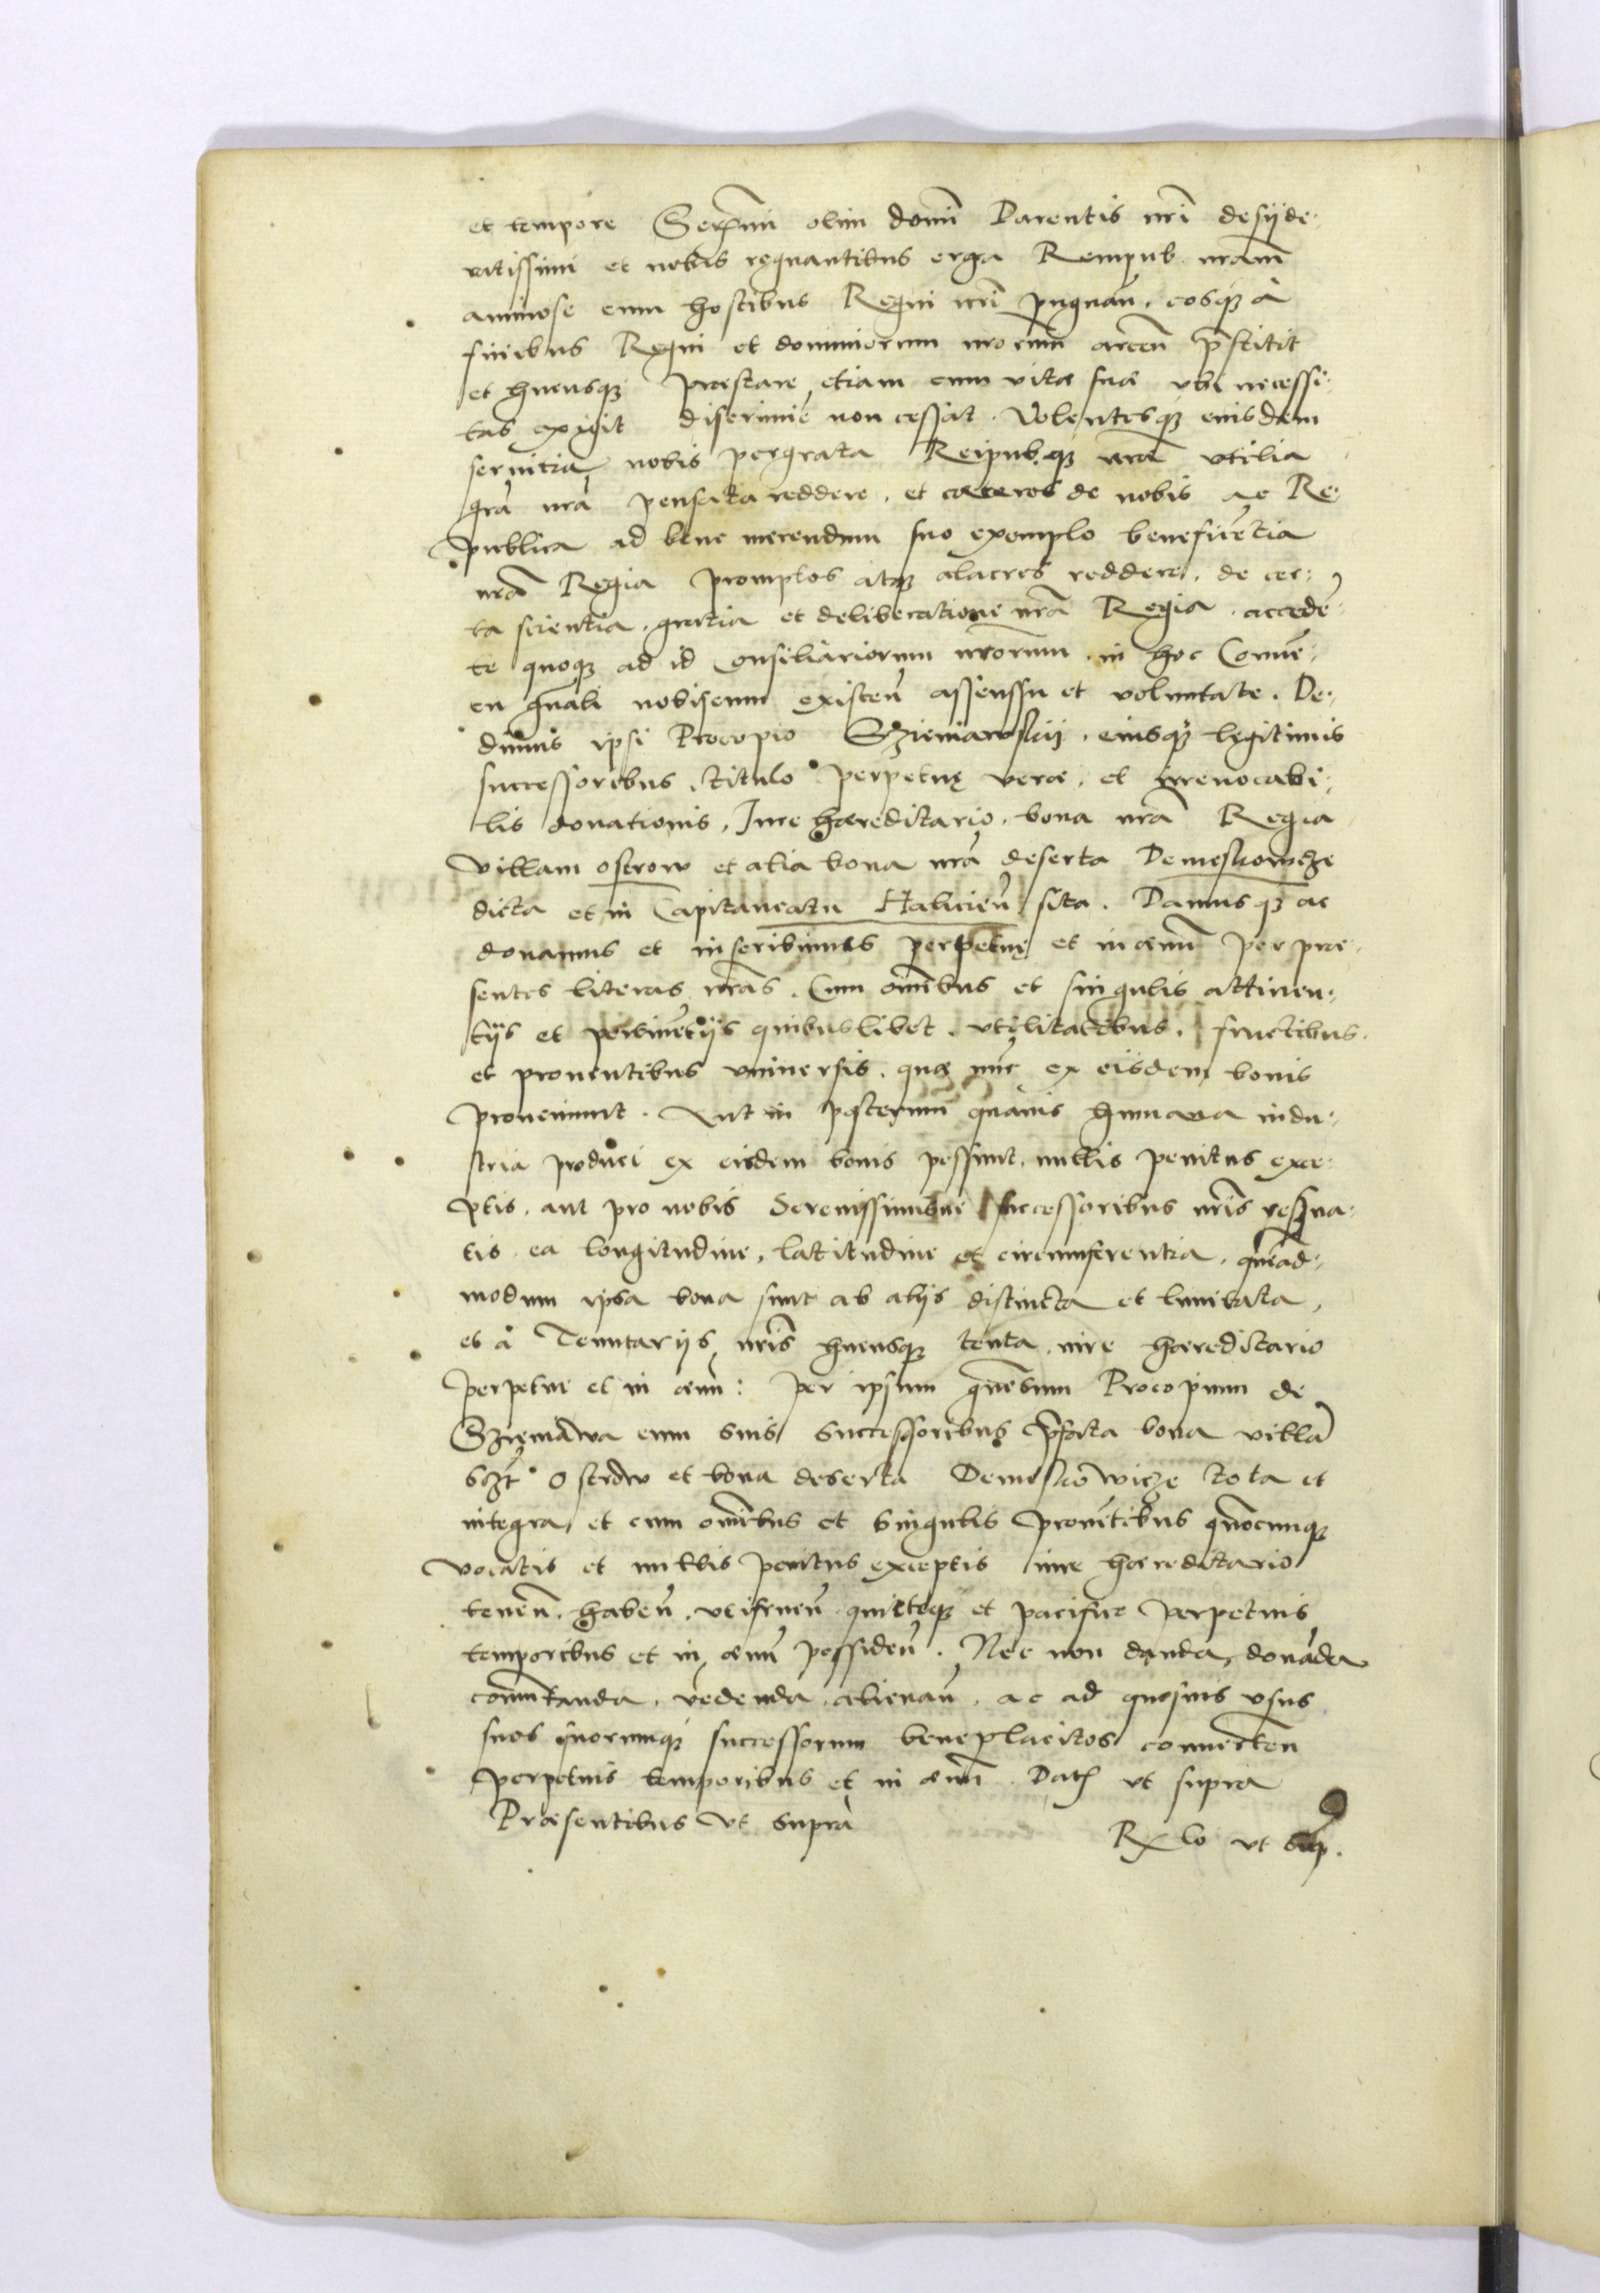 et tempore Serenmi olim domi Parentis nri desyde-
ratissimi et nobis regnantibus erga Rempub. nram
animose cum hostibus Regni nri pugnan. eosq3 à
finibus Regni et dominiorum nrorum arcen pstitit
et hucusq3 praestare etiam cum vitae suae ubi necessi-
tas exigit discrimine non cessat. Volentesq3 eiusdem
servitia nobis pergrata Reipub. q3 nrae utilia
gra nra pensata reddere. et caeteros de nobis ac Re-
publica ad bene merendum suo exemplo beneficentia
nra Regia promptos atq3 alacres reddere. de cer-
ta scientia. gratia et deliberatione nra Regia. acceden-
te quoq3 ad id Consiliariorum nrorum in hoc Conven-
en gnali nobiscum existen assenssu et voluntate. De-
dimus ipsi Procopio Sziemiawskij. eiusq3 legitimis
successoribus. titulo perpetuę verae. et irrevocabi-
lis donationis. Iure haereditario. bona nra Regia
villam ostrow et alia bona nra deserta Demeskowcze
dicta et in Capitaneatu Halicien sita. Damusq3 ac
donamus et inscribimus perpetuę et in aevum per prae-
sentes literas nras. Cum omibus et singulis attinen-
tijs et pertinetijs quibuslibet. utilitatibus. fructibus.
et proventibus universis. quae nunc ex eisdem bonis
proveniunt. Aut in posterum quavis humana indu-
stria produci ex eisdem bonis possunt. nullis penitus exce-
ptis. aut pro nobis Serenissimisue successoribus nris reserva-
tis. ea longitudine. latitudine et circumferentia. quead-
modum ipsa bona sunt ab alijs distincta et limitata,
et à Tenutarijs nris hucusq3 tenta. iure haereditario
perpetue et in aevum: per ipsum gnosum Procopium de
Sziemiawa cum suis Successoribus pfata bona villa
sczt Ostrow et bona deserta Demeskowicze tota et
integra, et cum omibus et singulis proventibus quocunq3
vocatis et nullis penitus exceptis iure haereditario
tenen. haben. utifruen. quieteq3 et pacifice perpetuis
temporibus et in aevum possiden. Nec non danda, donada
comutanda. vedenda. alienan. ac ad quosuis usus
suos suorumq3 successorum beneplacitos converten
perpetuis temporibus et in aevum. Dat ut supra
Praesentibus ut supra
Rx lo ut sup.